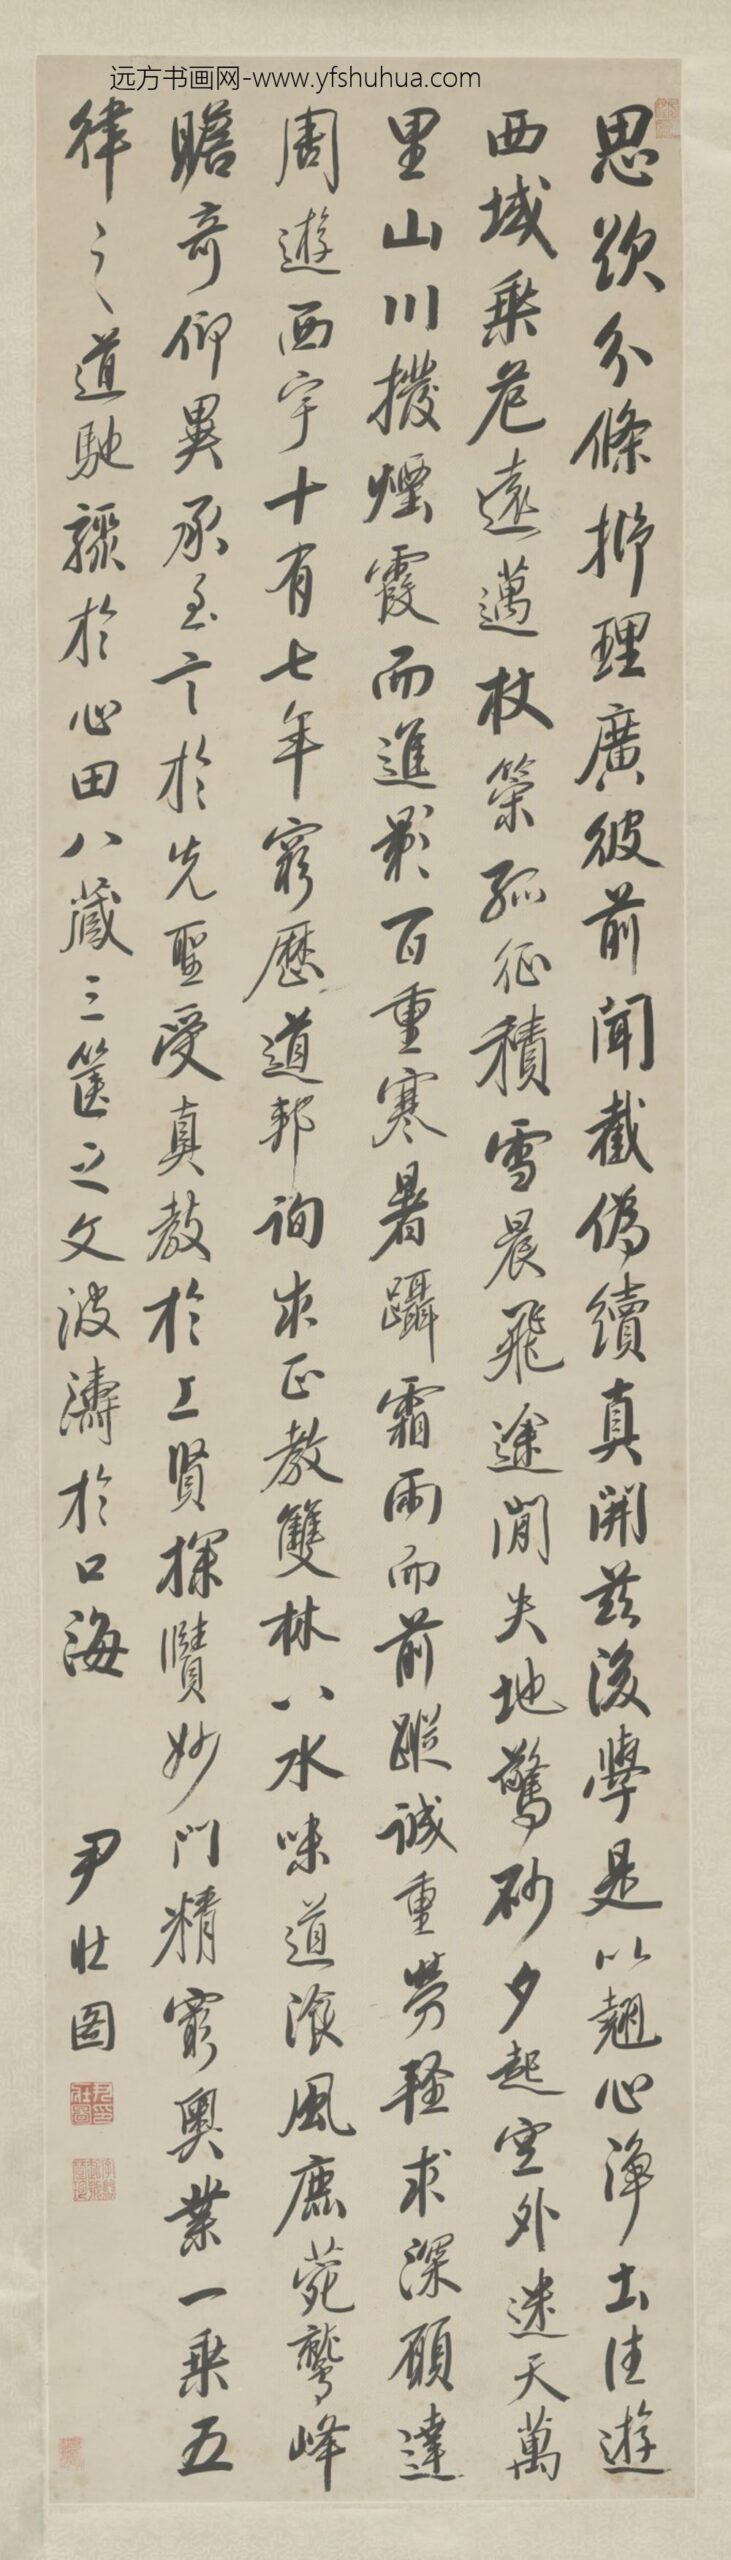 远方书画网-www.yfshuhua.com
思欲分條㭊理廣彼前聞截偽續真開茲後學是以翹心淨土往遊
西域乘危遠邁杖策孤征積雪晨飛途閒失地驚砂夕起空外迷天萬
里山川撥煙霞而進影百重寒暑躡霜雨而前蹤誠重勞輕求深願達
周遊西宇十有七年窮歷道邦詢求正教雙林八水味道飡風鹿菀鷲峰
瞻奇仰異承至言於先聖受真教於上賢探賾妙門精窮奧業一乘五
律之道馳驟於心田八藏三篋之文波濤於口海
尹壯圖